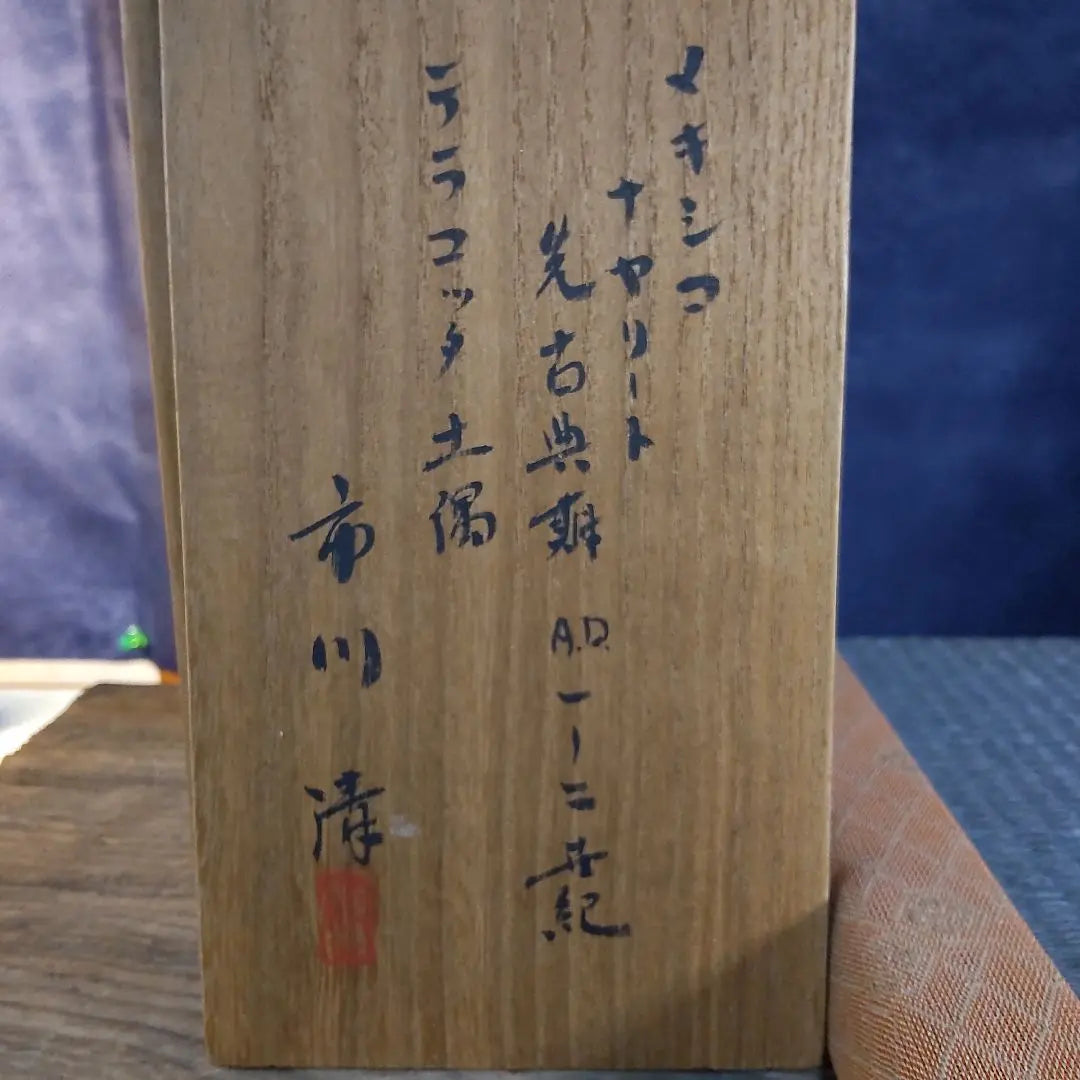 メキシコ
ナヤリート
先古典期 A.D. 一ー二世紀
テラコッタ土偶
市川清